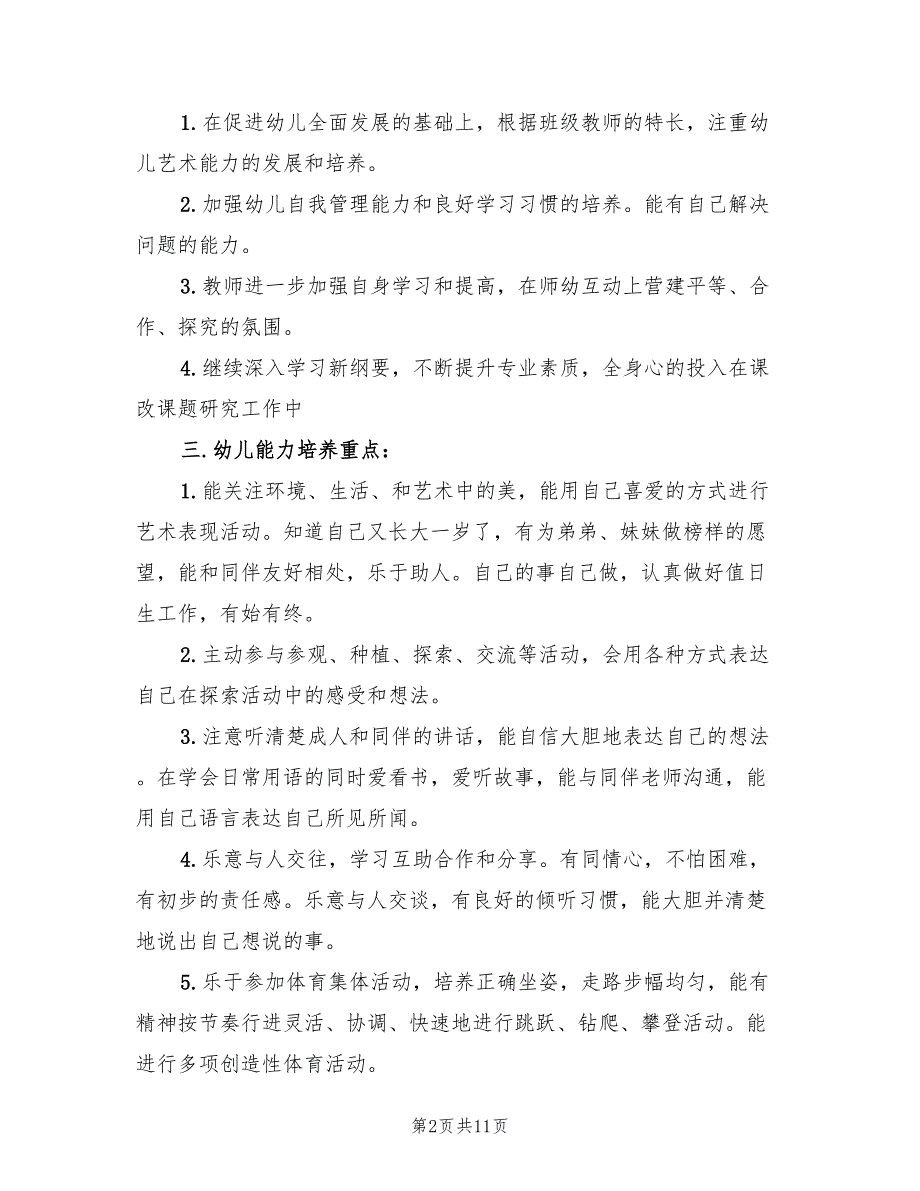 1. 在促进幼儿全面发展的基础上，根据班级教师的特长，注重幼
儿艺术能力的发展和培养。
2. 加强幼儿自我管理能力和良好学习习惯的培养。能有自己解决
问题的能力。
3. 教师进一步加强自身学习和提高，在师幼互动上营建平等、合
作、探究的氛围。
4. 继续深入学习新纲要，不断提升专业素质，全身心的投入在课
改课题研究工作中
三. 幼儿能力培养重点：
1. 能关注环境、生活、和艺术中的美，能用自己喜爱的方式进行
艺术表现活动。知道自己又长大一岁了，有为弟弟、妹妹做榜样的愿
望，能和同伴友好相处，乐于助人。自己的事自己做，认真做好值日
生工作，有始有终。
2. 主动参与参观、种植、探索、交流等活动，会用各种方式表达
自己在探索活动中的感受和想法。
3. 注意听清楚成人和同伴的讲话，能自信大胆地表达自己的想法
。在学会日常用语的同时爱看书，爱听故事，能与同伴老师沟通，能
用自己语言表达自己所见所闻。
4. 乐意与人交往，学习互助合作和分享。有同情心，不怕困难，
有初步的责任感。乐意与人交谈，有良好的倾听习惯，能大胆并清楚
地说出自己想说的事。
5. 乐于参加体育集体活动，培养正确坐姿，走路步幅均匀，能有
精神按节奏行进灵活、协调、快速地进行跳跃、钻爬、攀登活动。能
进行多项创造性体育活动。
第2页共11页